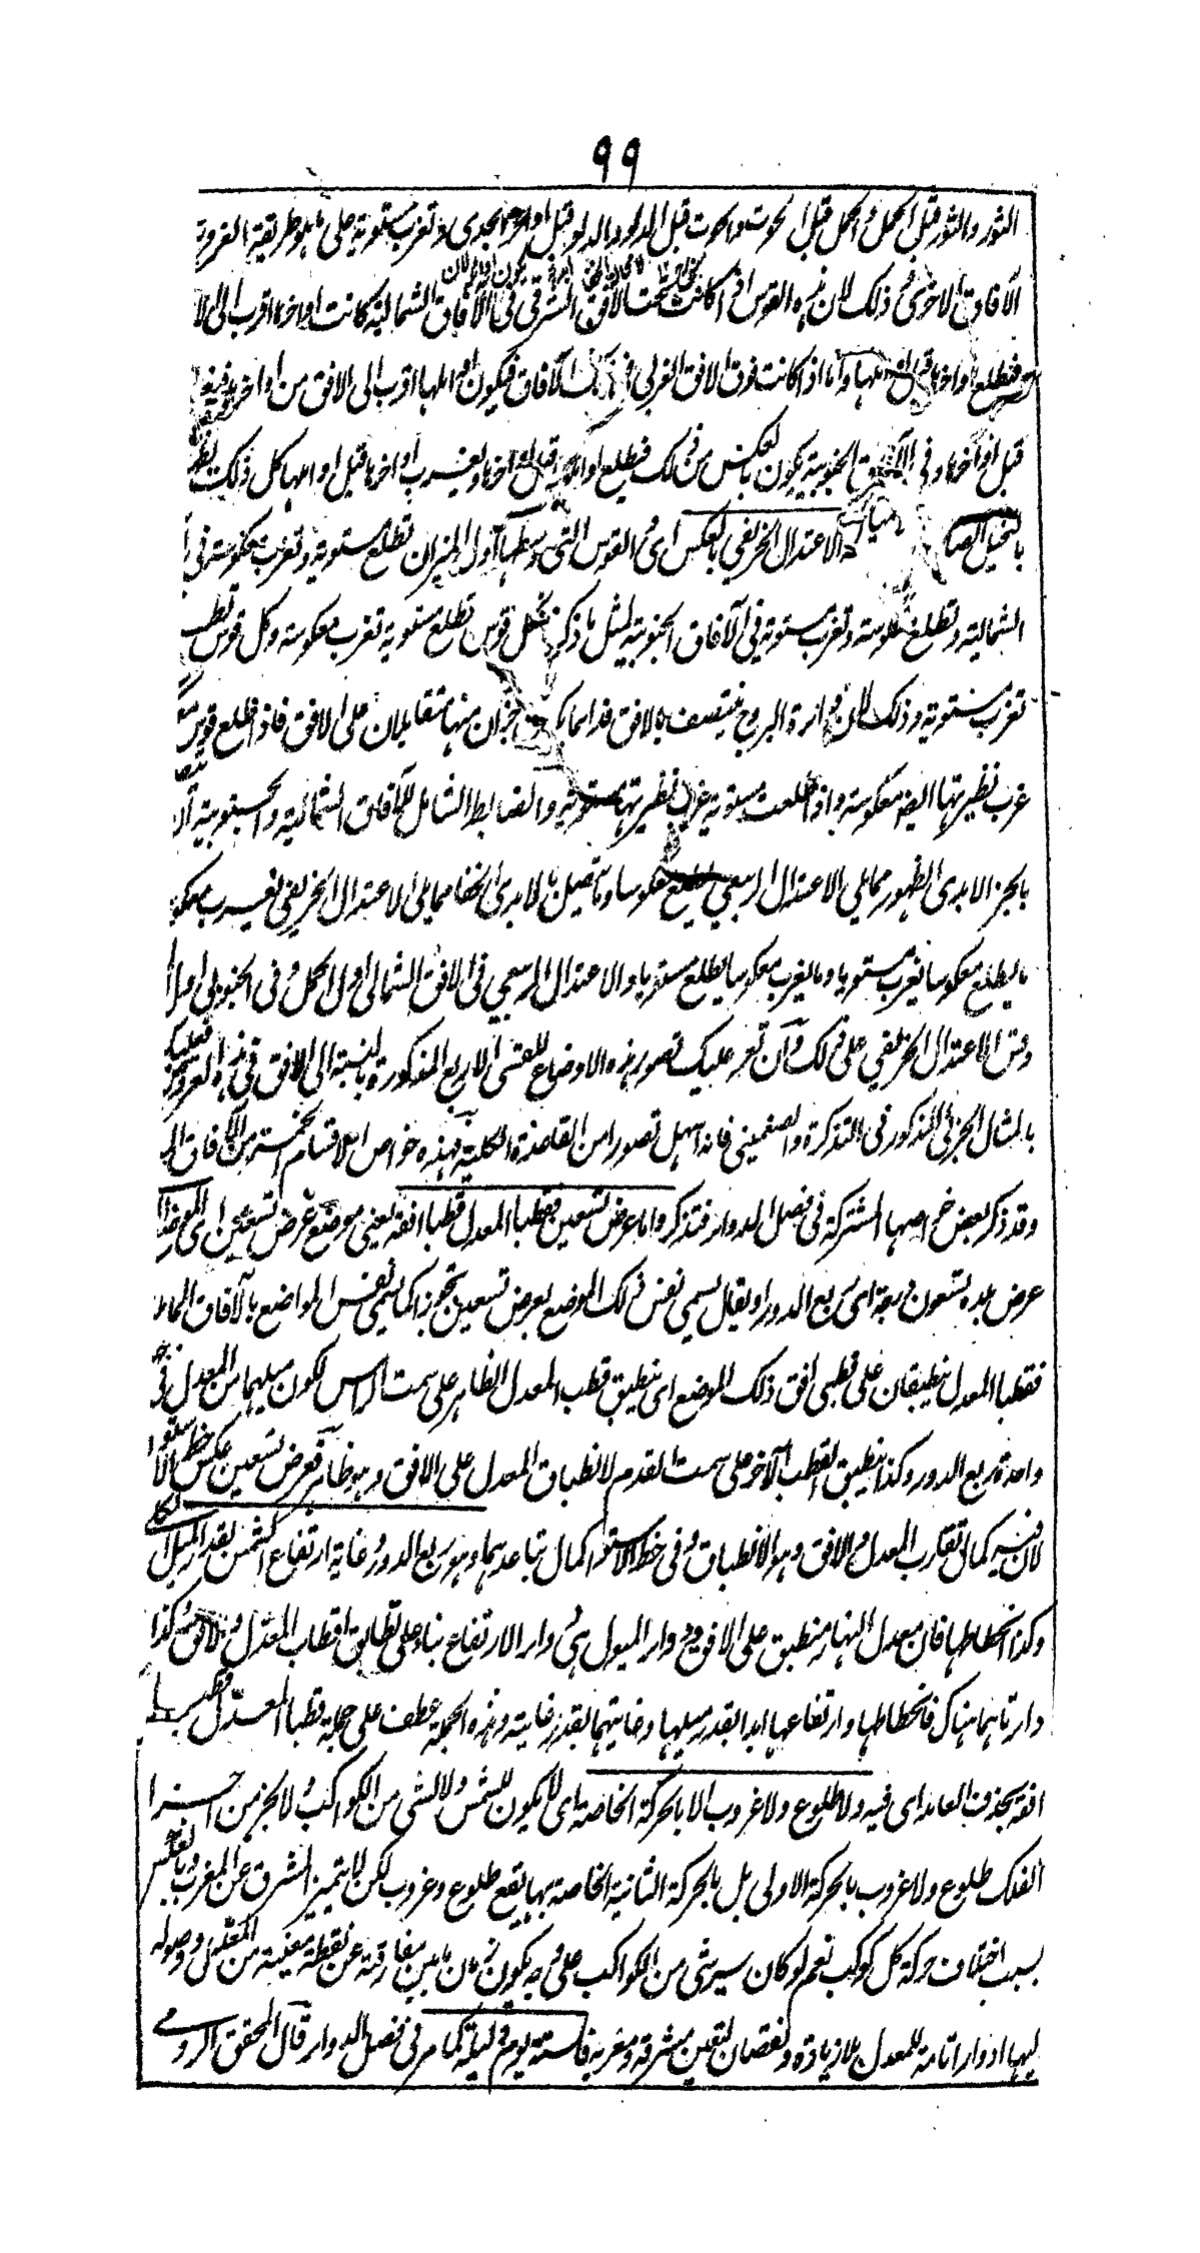 ٩٩
الثور والثور قبل الحمل والحمل قبل الحوت والحوت قبل الدلو والدلو قبل الجدى وتغرب مستوية على طريقة الغروب
الآفاق الاخرى وذلك لان هذه القوس اذا كانت تحت الافق الشرقى فى الآفاق الشمالية كانت اواخرها اقرب الى
فتطلع اواخرها قبل واما اذا كانت فوق الافق الغربى فى الآفاق فيكون اوائلها اقرب الى الافق من اواخرها
قبل اواخرها وفى الجنوبية يكون بالعكس من ذلك فيطلع قبل اواخرها ويغرب اواخرها قبل اوائلها كل ذلك
بالتخيل الصا الاعتدال الخريفى بالعكس اى القوس التى وسطها اول الميزان تطلع مستوية وتغرب معكوسة فى
الشمالية وتطلع معكوسة وتغرب مستوية فى الآفاق الجنوبية لمثل ما ذكر فكل قوس تطلع مستوية تغرب معكوسة وكل قوس
تغرب مستوية وذلك لان دائرة البروج منتصف بالافق جزءان منها متقابلان على الافق فاذا طلع قوس
غرب نظيرتها ايضا معكوسة واذا طلعت مستوية غرب نظيرتها مستوية والضابط الشامل للآفاق الشمالية والجنوبية ان
بالجزء الابدى الظهور مما يلى الاعتدال الربيعى يطلع معكوسا وما يتصل بالابدى الخفا مما يلى الاعتدال الخريفى يغرب
ما يطلع معكوسا يغرب مستويا وما يغرب معكوسا يطلع مستويا والاعتدال الربيعى فى الافق الشمالى اول الحمل وفى الجنوبى اول
وقس الاعتدال الخريفى على ذلك وان تعسر عليك تصور هذه الاوضاع للقسى الاربع المذكورة بالنسبة الى الافق فى هذه العروض فعليك
بالمثال الجزئى المذكور فى التذكرة والصغمينى فانه اسهل تصورا من القاعدة الكلية فهذه خواص الاقسام الخمسة من الآفاق
وقد ذكر بعض خواصها المشتركة فى فصل الدوار فتذكر واما عرض تسعين فقطبا المعدل قطبا افقه يعنى موضع عرض تسعين اى الموضع
عرض بلده تسعون درجة اى ربع الدور او يقال يسمى نفس ذلك الموضع بعرض تسعين تجوزا كما يسمى نفس المواضع بالآفاق المائلة
فقطبا المعدل ينطبقان على قطبى افق ذلك الموضع اى ينطبق قطب المعدل الظاهر على سمت الراس لكون ميلهما من المعدل فى
واحدة ربع الدور وكذا ينطبق القطب الآخر على سمت القدم لانطباق المعدل على الافق وهو ظاهر فعرض تسعين عكس خط الاستواء
لان فيه كمال تقارب المعدل والافق وهو الانطباق وفى خط الاستواء كمال تباعدهما وهو ربع الدور وغاية ارتفاع الشمس بقدر الميل الكلى
وكذا انحطاطها فان معدل النهار منطبق على الافق ودوائر الميول هى دوائر الارتفاع بناء على تطابق اقطاب المعدل والافق وكذا
دائرتاهما هناك فانحطاطها وارتفاعها ابدا بقدر ميلها وغايتهما بقدر غايته وهذه الجملة عطف على جملة قطبا المعدل قطبا
افقه بحذف العائد اى فيه ولا طلوع ولا غروب الا بالحركة الخاصة اى لا يكون للشمس ولا لشئ من الكواكب ولا لجزء من اجزاء
الفلك طلوع ولا غروب بالحركة الاولى بل بالحركة الثانية الخاصة بها يقع طلوع وغروب لكن لا يتميز المشرق عن المغرب وبالعكس
بسبب اختلاف حركة كل كوكب نعم لو كان سير شئ من الكواكب على وجه يكون زمان ما بين مفارقته عن نقطة معينة من المعدل ووصوله
اليها ادوارا تامة للمعدل بلا زيادة ونقصان لتعين مشرقه ومغربه فالسنة يوم وليلة كما مر فى فصل الدوار قال المحقق الرومى